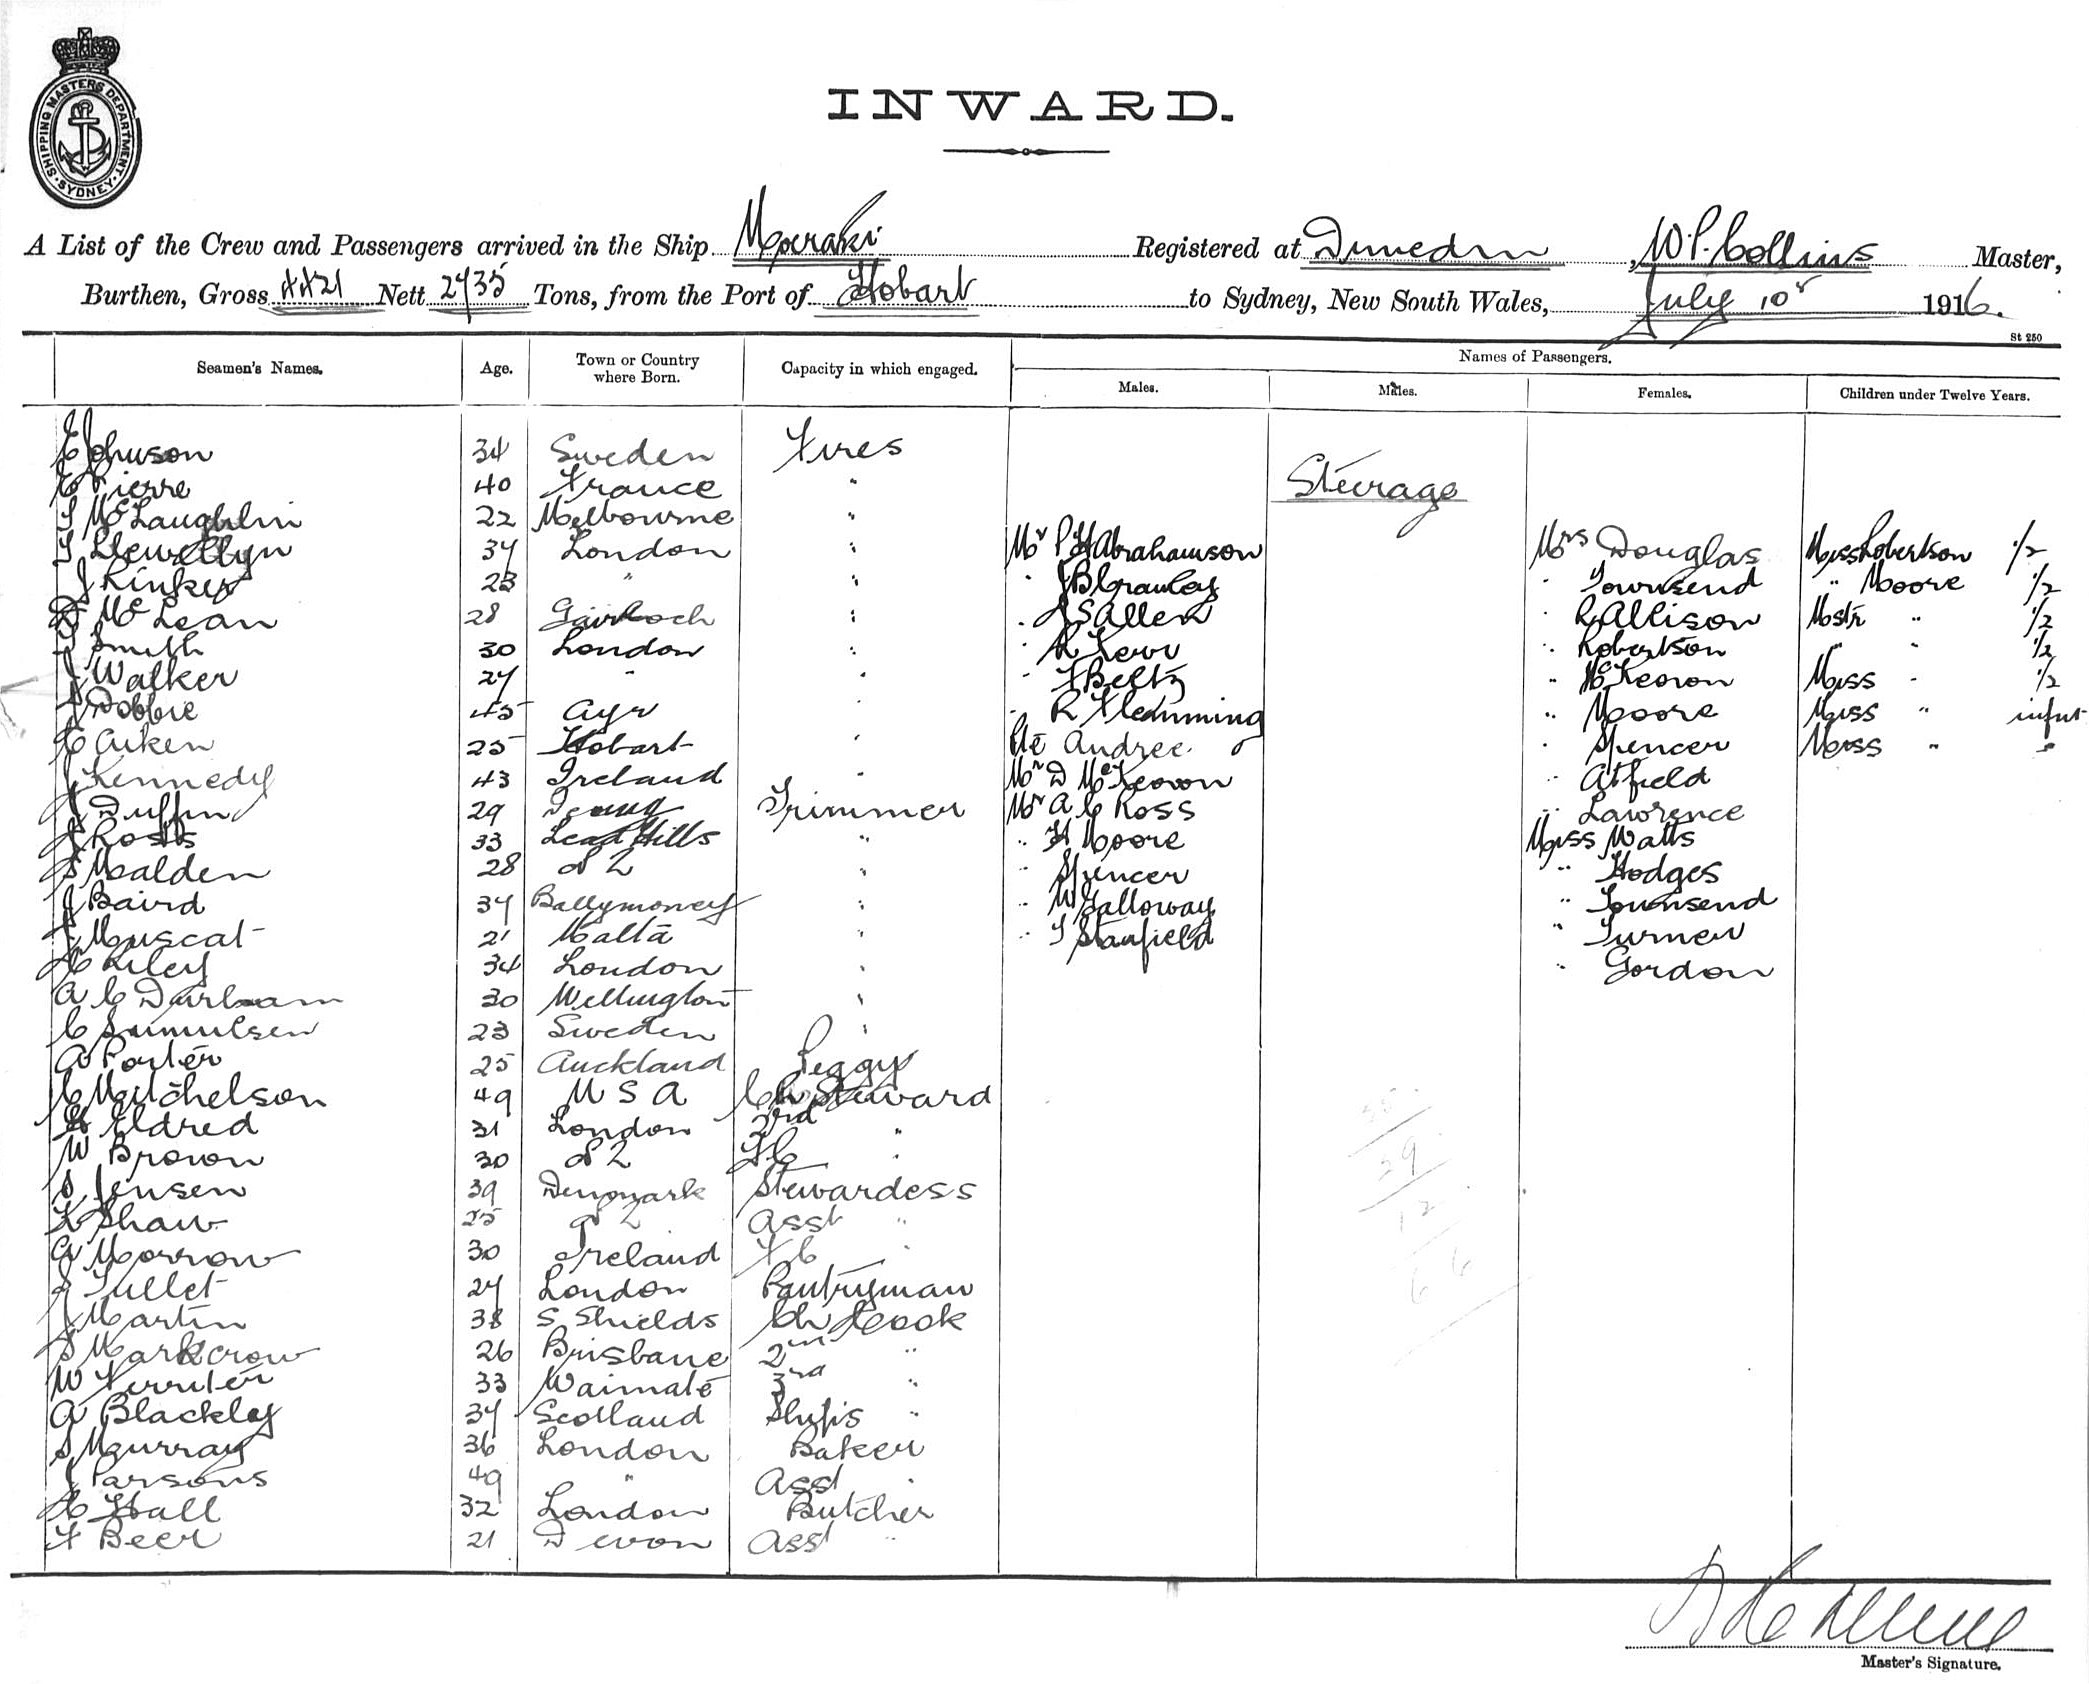 SHIPPING MASTERS DEPARTMENT · SYDNEY ·
INWARD.
A List of the Crew and Passengers arrived in the Ship Moeraki Registered at Dunedin, W.P. Collins Master,
Burthen, Gross 4421 Nett 2735 Tons, from the Port of Hobart to Sydney, New South Wales, July 10 1916.
St 250
Seamen's Names. Age. Town or Country where Born. Capacity in which engaged. Names of Passengers.
Males. Males. Females. Children under Twelve Years.
E Johnson 34 Sweden Fires
E Pierre 40 France " Steerage
T McLaughlin 22 Melbourne "
T Llewellyn 37 London " Mr P H Abrahamson Mrs Douglas Miss Robertson 1/2
J Kinker 23 " " " J B Crawley " Townsend " Moore 1/2
D McLean 28 Gairloch " " J S Allen " R Allison Mstr " 1/2
T Smith 30 London " " R Kerr " Robertson " " 1/2
J Walker 27 " " " F Beltz " McKeown Miss " 1/2
J Dobbie 45 Ayr " " R Flemming " Moore Miss " infnt
C Aiken 25 Hobart " Andree " Spencer Miss " "
J Kennedy 43 Ireland " Mr D McKeown " Atfield
J Duffin 29 Trimmer Mr A C Ross " Lawrence
J Ross 33 Lead Hills " " H Moore Miss Watts
J Malden 28 N Z " " Spencer " Hodges
J Baird 37 Ballymoney " " W Galloway " Townsend
J Muscat 21 Malta " " T Stanfield " Turner
C Riley 34 London " " Gordon
A C Durham 30 Wellington "
C Samuelsen 23 Sweden "
A Porter 25 Auckland Peggy
C Mitchelson 49 U S A Ch Steward
H Eldred 31 London 3rd "
W Brown 30 N Z "
S Jensen 39 Denmark Stewardess
K Shaw 25 N Z Asst "
A Morrow 30 Ireland F C "
J Tullet 27 London Pantryman
J Martin 38 S Shields Ch Cook
S Markcrow 26 Brisbane 2nd "
W Ferriter 33 Waimate 3rd "
A Blackley 37 Scotland Ships "
S Murray 36 London Baker
J Parsons 49 " Asst "
C Hall 32 London Butcher
F Beer 21 Devon Asst "
39
12
66
Master's Signature.